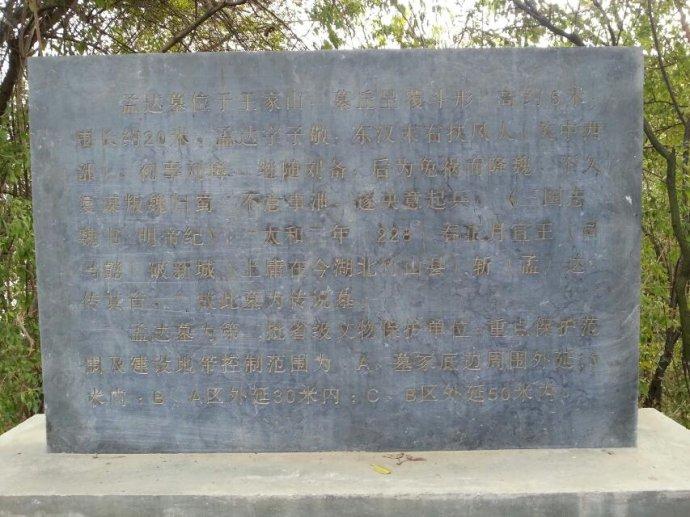 孟达墓位于王家山，墓丘呈覆斗形，高约6米，
围长约20米。孟达字子敬，东汉末右扶风人（
初事刘璋，继随刘备，后为免祸而降魏，不久
复谋叛魏归蜀，不意事泄，遂决意起兵。《三国志
魏书 明帝纪》：太和二年（228）春正月宣王（司
破新城（上庸在今湖北竹山县）斩（孟）达，
传其首。”故此墓为传说墓。
孟达墓为第 批省级文物保护单位，重点保护范
围及建设地带控制范围为：A、墓冢底边周围外延
米内；B、A区外延30米内；C、B区外延50米内。